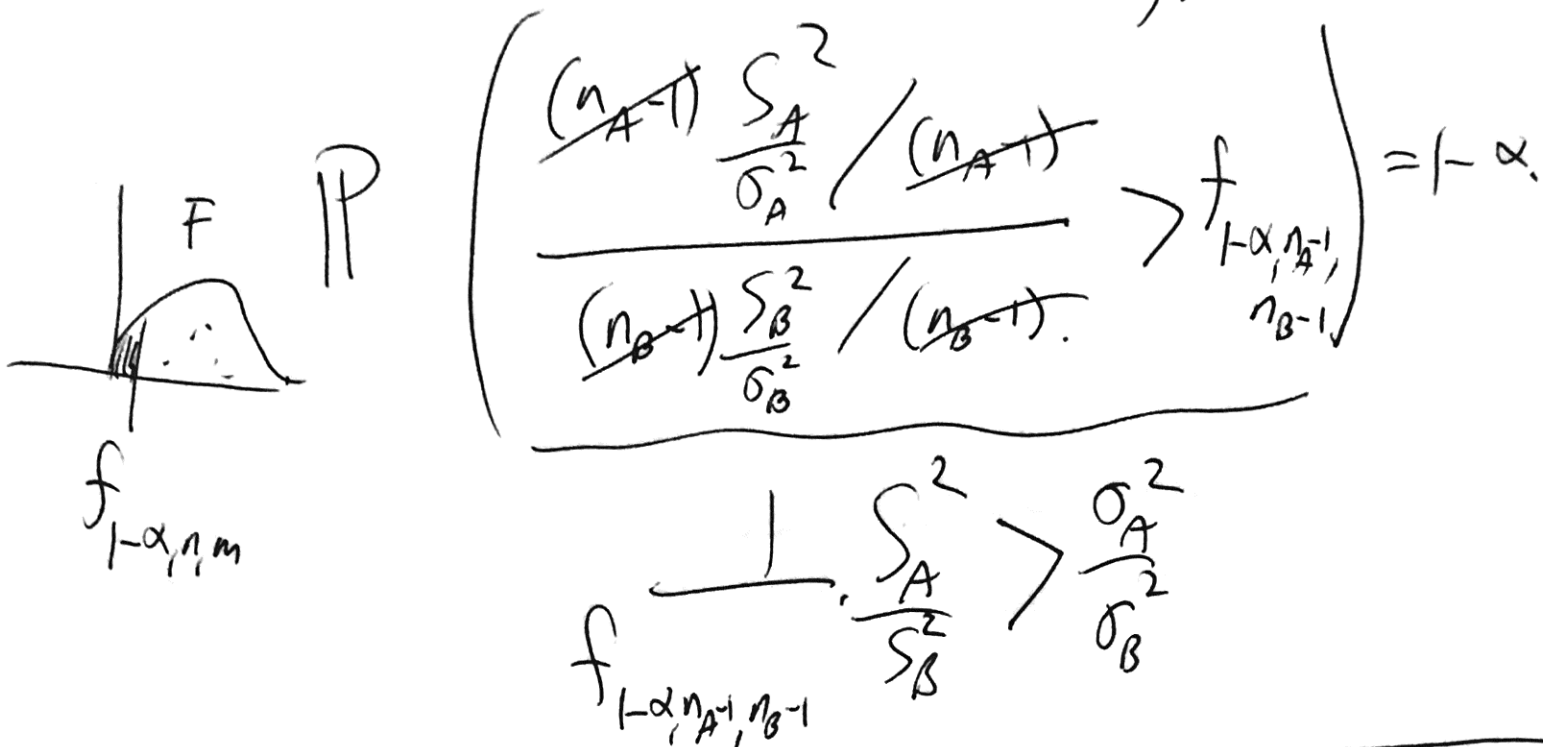 F
f_{1-α,n,m}
ℙ( \frac{(n_A-1) \frac{S_A^2}{σ_A^2} / (n_A-1)}{(n_B-1) \frac{S_B^2}{σ_B^2} / (n_B-1).} > f_{1-α, n_A-1, n_B-1} ) = 1-α.
\frac{1}{f_{1-α, n_A-1, n_B-1}} · \frac{S_A^2}{S_B^2} > \frac{σ_A^2}{σ_B^2}